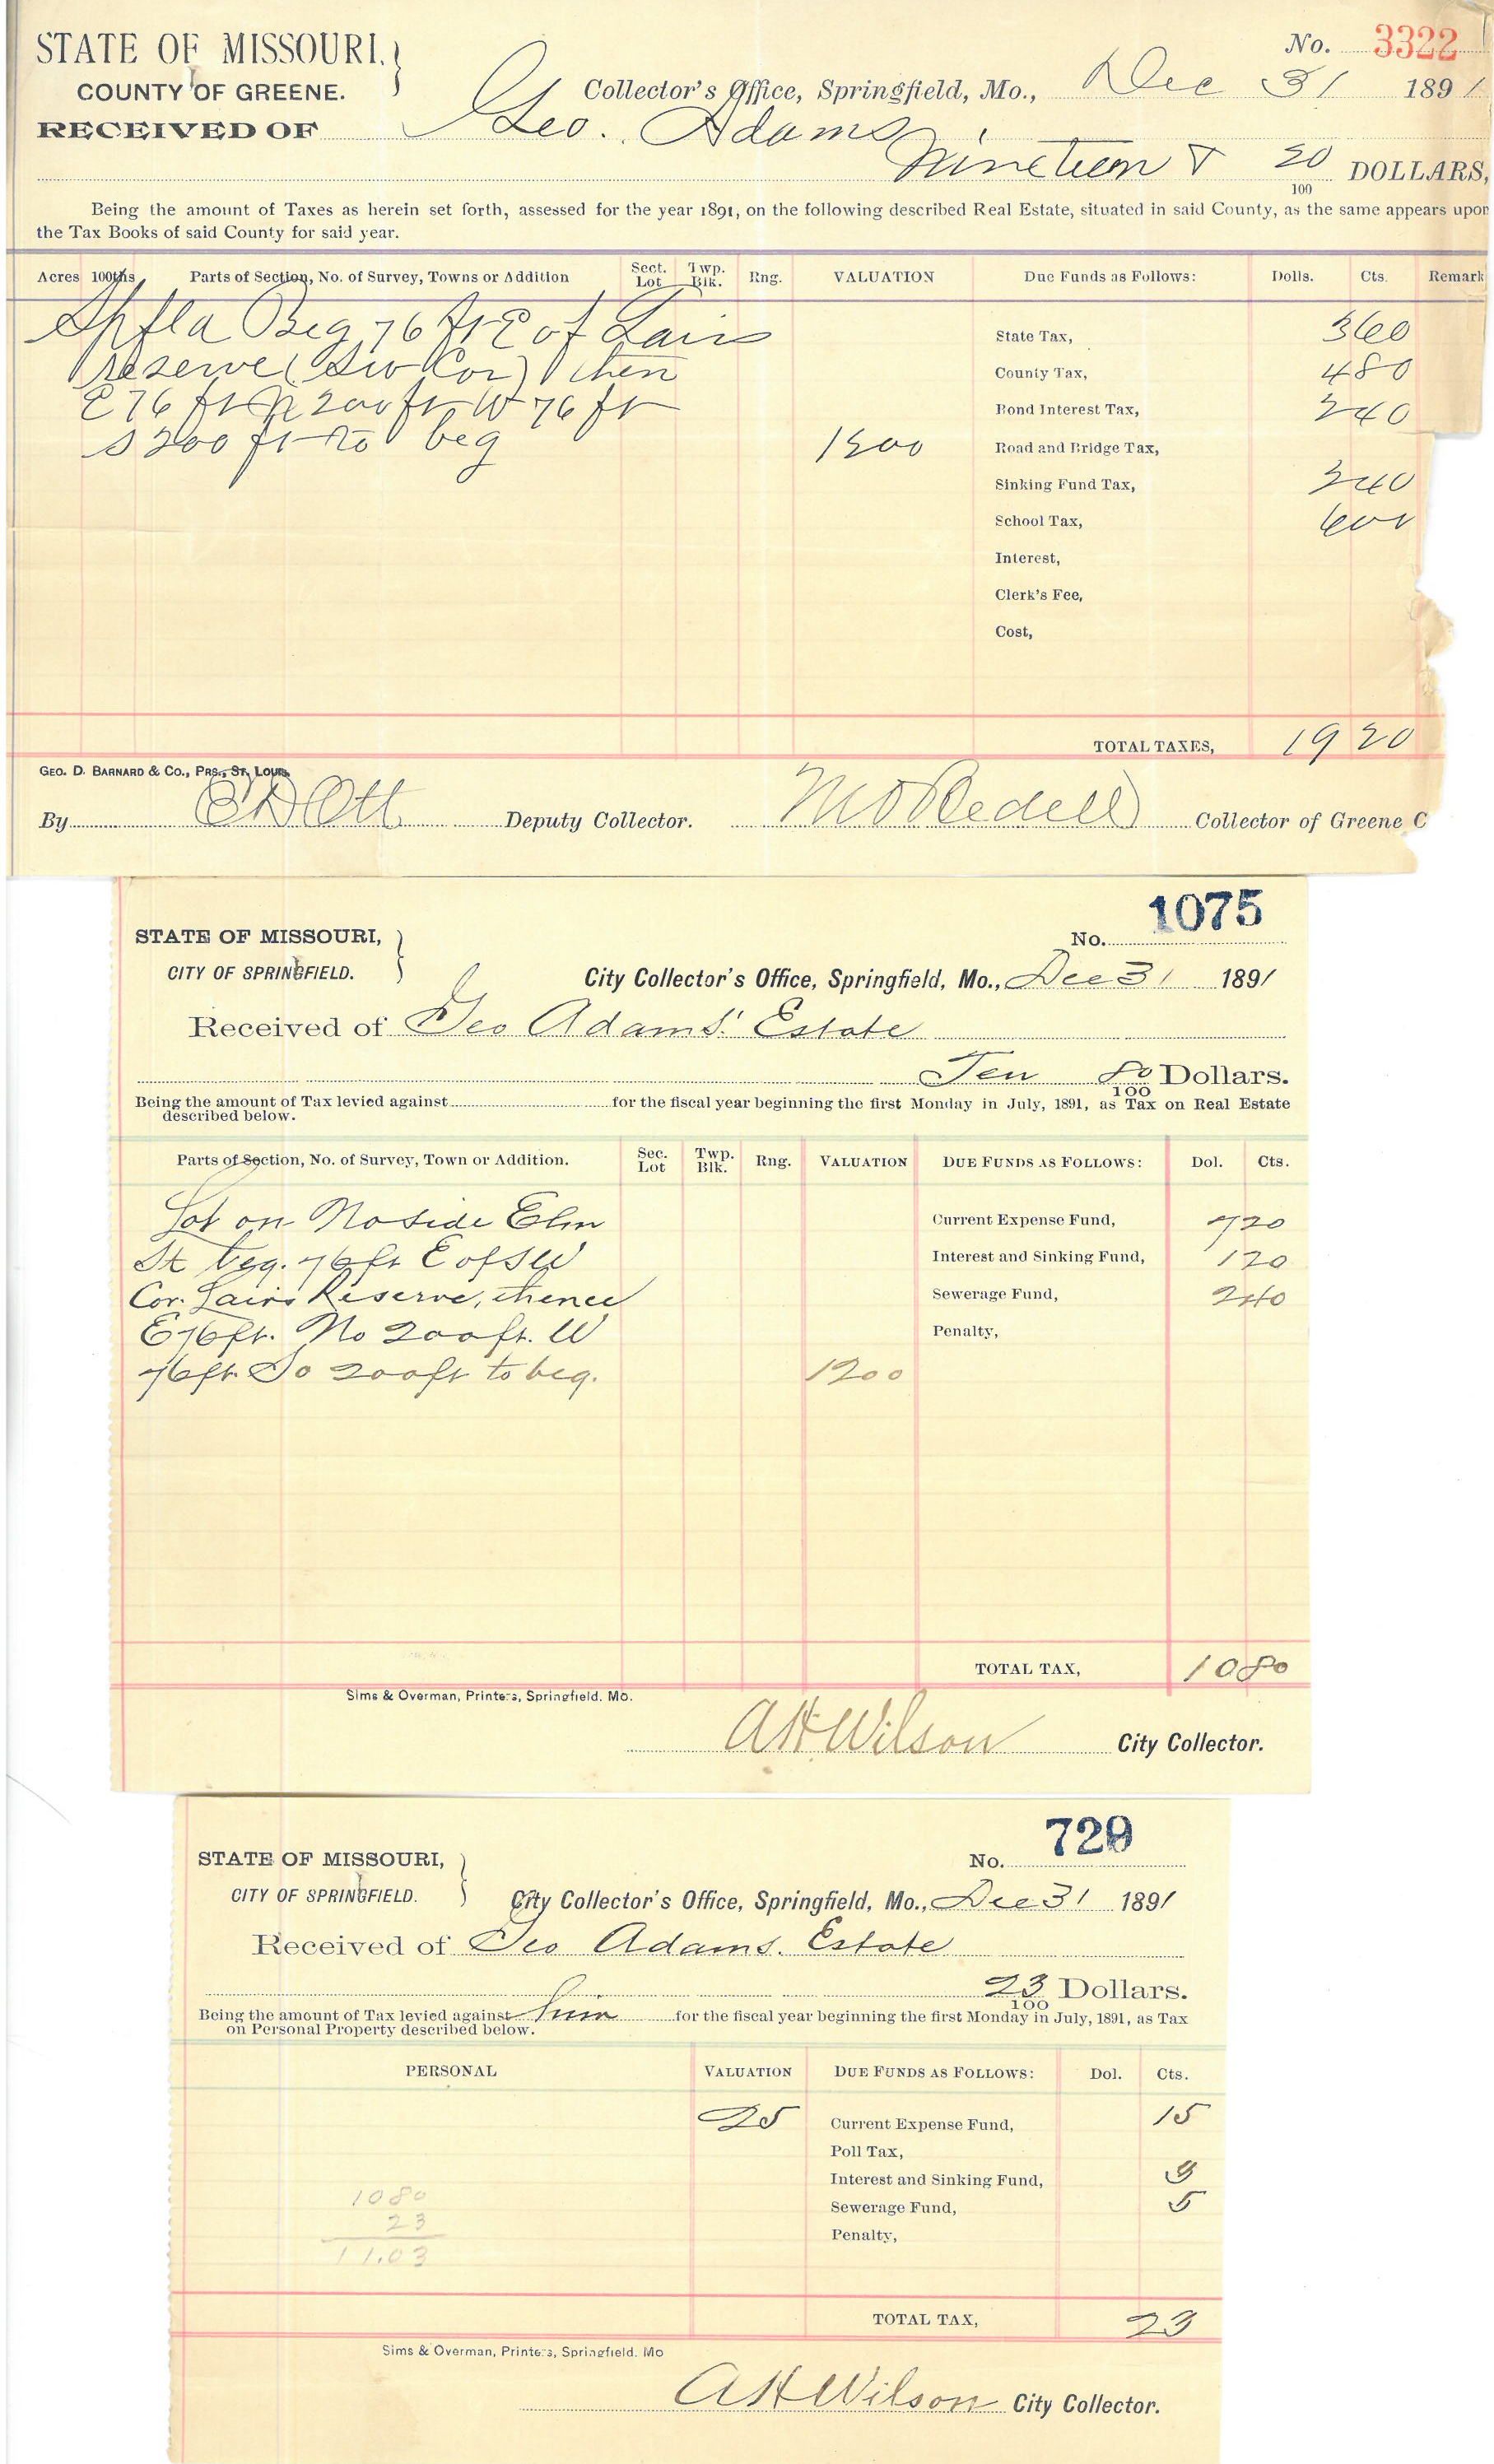 STATE OF MISSOURI,
COUNTY OF GREENE.
No. 3322
Collector's Office, Springfield, Mo., Dec 31 1891
RECEIVED OF Geo. Adams
Nineteen & 20/100 DOLLARS,
Being the amount of Taxes as herein set forth, assessed for the year 1891, on the following described Real Estate, situated in said County, as the same appears upon
the Tax Books of said County for said year.
Acres 100ths Parts of Section, No. of Survey, Towns or Addition Sect. Lot Twp. Blk. Rng. VALUATION Due Funds as Follows: Dolls. Cts. Remark
Spfld Beg 76 ft E of Lairs
reserve (Sw Cor) then
E 76 ft N 200 ft W 76 ft
S 200 ft to beg 1200
State Tax, 360
County Tax, 480
Bond Interest Tax, 240
Road and Bridge Tax,
Sinking Fund Tax, 240
School Tax, 600
Interest,
Clerk's Fee,
Cost,
TOTAL TAXES, 19 20
GEO. D. BARNARD & CO., PRS., ST. LOUIS.
By E D Ott Deputy Collector. M O Bedell Collector of Greene C
STATE OF MISSOURI,
CITY OF SPRINGFIELD.
No. 1075
City Collector's Office, Springfield, Mo., Dec 31 1891
Received of Geo Adams' Estate
Ten 80/100 Dollars.
Being the amount of Tax levied against for the fiscal year beginning the first Monday in July, 1891, as Tax on Real Estate
described below.
Parts of Section, No. of Survey, Town or Addition. Sec. Lot Twp. Blk. Rng. VALUATION DUE FUNDS AS FOLLOWS: Dol. Cts.
Lot on No side Elm
St beg. 76 ft E of SW
Cor. Lairs Reserve, thence
E 76 ft. No 200 ft. W
76 ft. So 200 ft to beg. 1200
Current Expense Fund, 720
Interest and Sinking Fund, 120
Sewerage Fund, 240
Penalty,
TOTAL TAX, 10 80
Sims & Overman, Printers, Springfield. Mo.
A H Wilson City Collector.
STATE OF MISSOURI,
CITY OF SPRINGFIELD.
No. 729
City Collector's Office, Springfield, Mo., Dec 31 1891
Received of Geo Adams. Estate
23/100 Dollars.
Being the amount of Tax levied against him for the fiscal year beginning the first Monday in July, 1891, as Tax
on Personal Property described below.
PERSONAL VALUATION DUE FUNDS AS FOLLOWS: Dol. Cts.
25 Current Expense Fund, 15
Poll Tax,
Interest and Sinking Fund, 3
Sewerage Fund, 5
Penalty,
1080
23
11.03
TOTAL TAX, 23
Sims & Overman, Printers, Springfield. Mo
A H Wilson City Collector.